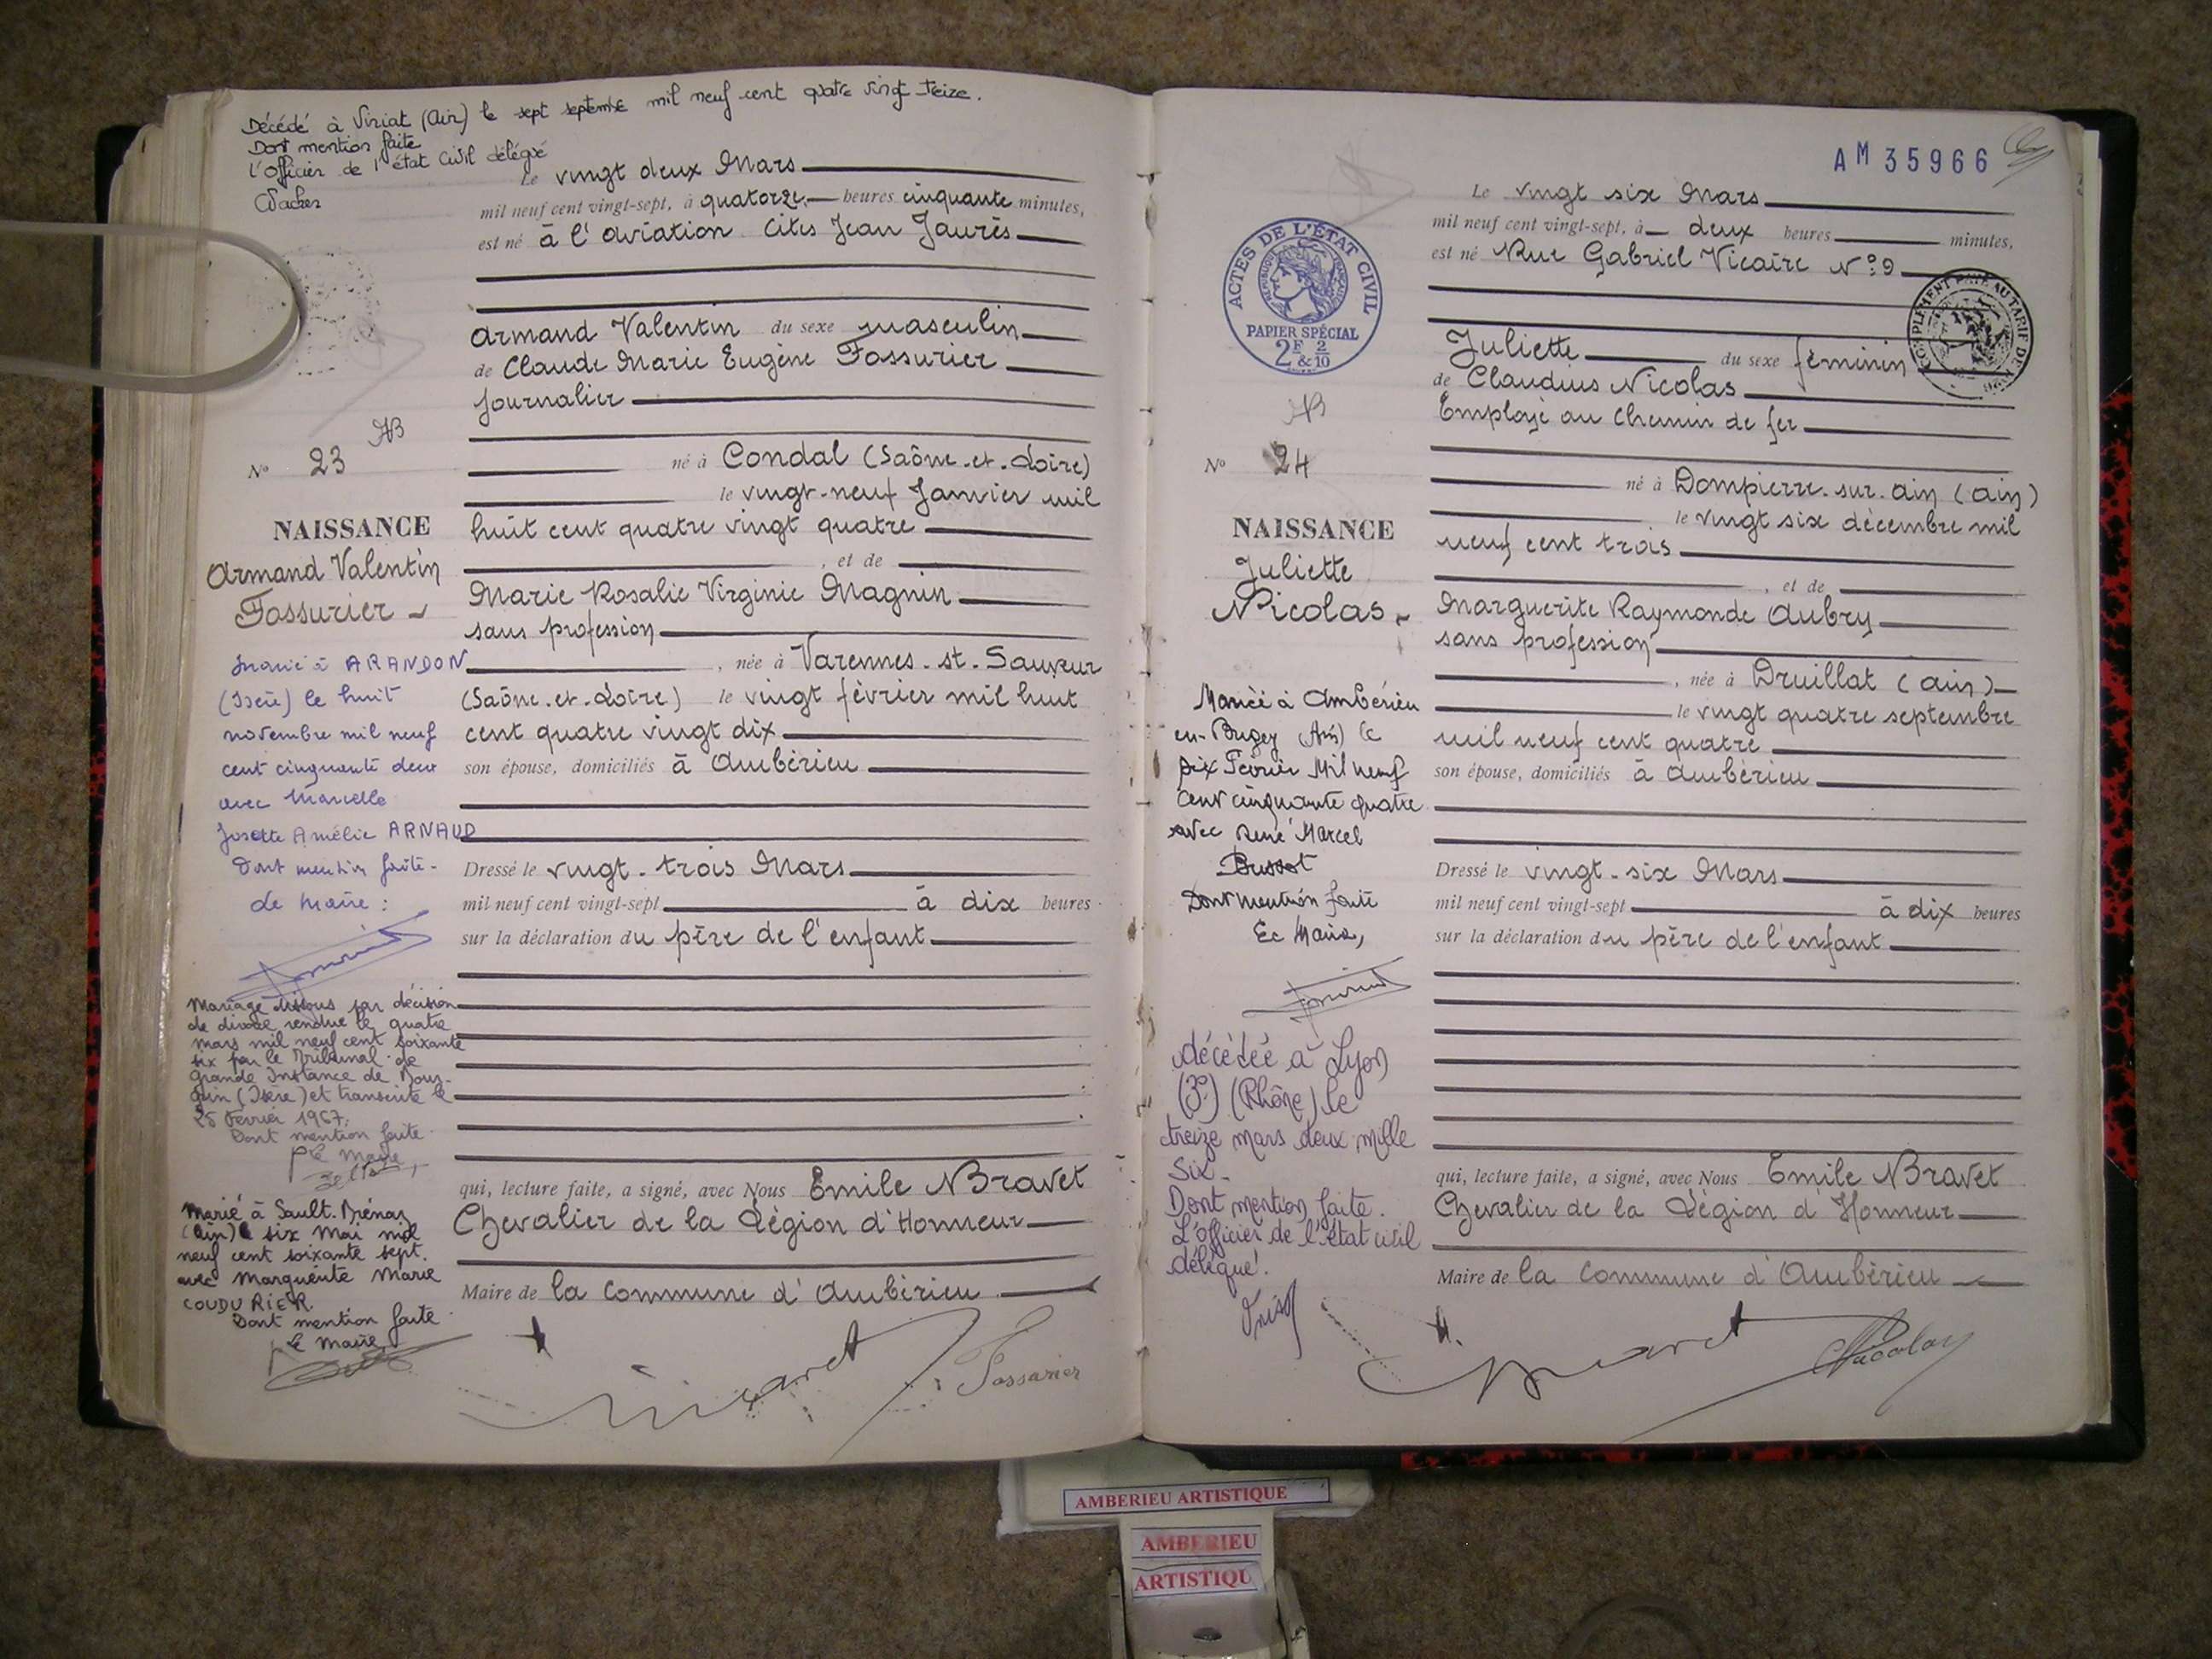 Décédé à Viriat (Ain) le sept septembre mil neuf cent quatre vingt treize.
Dont mention faite
l'Officier de l'état civil délégué
Le vingt deux Mars
mil neuf cent vingt-sept, à quatorze heures cinquante minutes,
est né à l'aviation Cités Jean Jaurès
Armand Valentin du sexe masculin
de Claude Marie Eugène Fossurier
Journalier
AB
N° 23
né à Condal (Saône-et-Loire)
le vingt-neuf Janvier mil
huit cent quatre vingt quatre
, et de
Marie Rosalie Virginie Magnin
sans profession
, née à Varennes-St-Sauveur
(Saône-et-Loire) le vingt février mil huit
cent quatre vingt dix
son épouse, domiciliés à Ambérieu
NAISSANCE
Armand Valentin
Fossurier
Marié à ARANDON
(Isère) le huit
novembre mil neuf
cent cinquante deux
avec Marcelle
Josette Amélie ARNAUD
Dont mention faite.
Le Maire :
Dressé le vingt-trois Mars
mil neuf cent vingt-sept à dix heures
sur la déclaration du père de l'enfant
Mariage dissous par décision
de divorce rendue le quatre
mars mil neuf cent soixante
six par le Tribunal de
Grande Instance de Bour-
goin (Isère) et transcrite le
25 Février 1967.
Dont mention faite
P. le Maire
Marié à Sault-Brénaz
(Ain) le six Mai mil
neuf cent soixante sept.
avec Marguerite Marie
COUDURIER.
Dont mention faite
P le Maire
qui, lecture faite, a signé, avec Nous Emile Bravet
Chevalier de la Légion d'Honneur
Maire de la Commune d'Ambérieu
Bravet
Fossurier
AM 35966
ACTES DE L'ÉTAT CIVIL
RÉPUBLIQUE FRANÇAISE
PAPIER SPÉCIAL
2F & 2/10
Le vingt six Mars
mil neuf cent vingt-sept, à deux heures minutes,
est né Rue Gabriel Vicaire N° 9
Juliette du sexe féminin
de Claudius Nicolas
Employé au Chemin de fer
AB
N° 24
né à Dompierre-sur-Ain (Ain)
le vingt six décembre mil
neuf cent trois
, et de
Marguerite Raymonde Aubry
sans profession
, née à Druillat (Ain)
le vingt quatre septembre
mil neuf cent quatre
son épouse, domiciliés à Ambérieu
NAISSANCE
Juliette
Nicolas
Mariée à Ambérieu
en-Bugey (Ain) le
dix Février Mil neuf
Cent cinquante quatre
avec René Marcel
Dont mention faite
Le Maire,
Dressé le vingt-six Mars
mil neuf cent vingt-sept à dix heures
sur la déclaration du père de l'enfant
décédée à Lyon
(3e) (Rhône) le
treize mars deux mille
six.
Dont mention faite.
L'officier de l'état civil
délégué.
qui, lecture faite, a signé, avec Nous Emile Bravet
Chevalier de la Légion d'Honneur
Maire de la Commune d'Ambérieu
Bravet
Nicolas
AMBERIEU ARTISTIQUE
AMBERIEU
ARTISTIQU